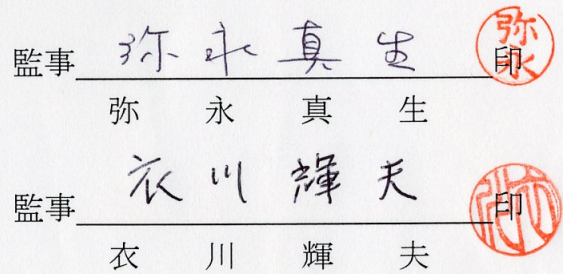 監事 弥永真生 印 弥永
弥永真生
監事 衣川輝夫 印
衣川輝夫